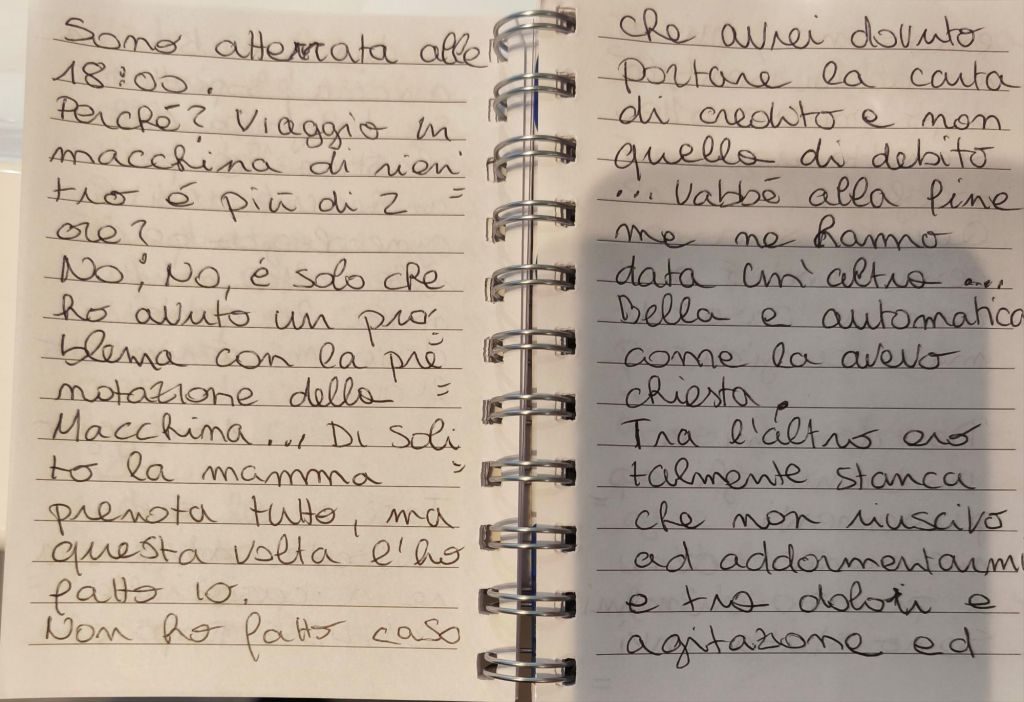 Sono atterrata alle
18:00.
Perché? Viaggio in
macchina di rien=
tro é più di 2
ore?
No, No, é solo che
ho avuto un pro=
blema con la pre=
notazione della
Macchina... Di soli=
to la mamma
prenota tutto, ma
questa volta l'ho
fatto io.
Non ho fatto caso
che avrei dovuto
portare la carta
di credito e non
quella di debito
... Vabbé alla fine
me ne hanno
data un'altra ....
Bella e automatica
come la avevo
chiesta.
Tra l'altro ero
talmente stanca
che non riuscivo
ad addormentarmi
e tra dolori e
agitazione ed